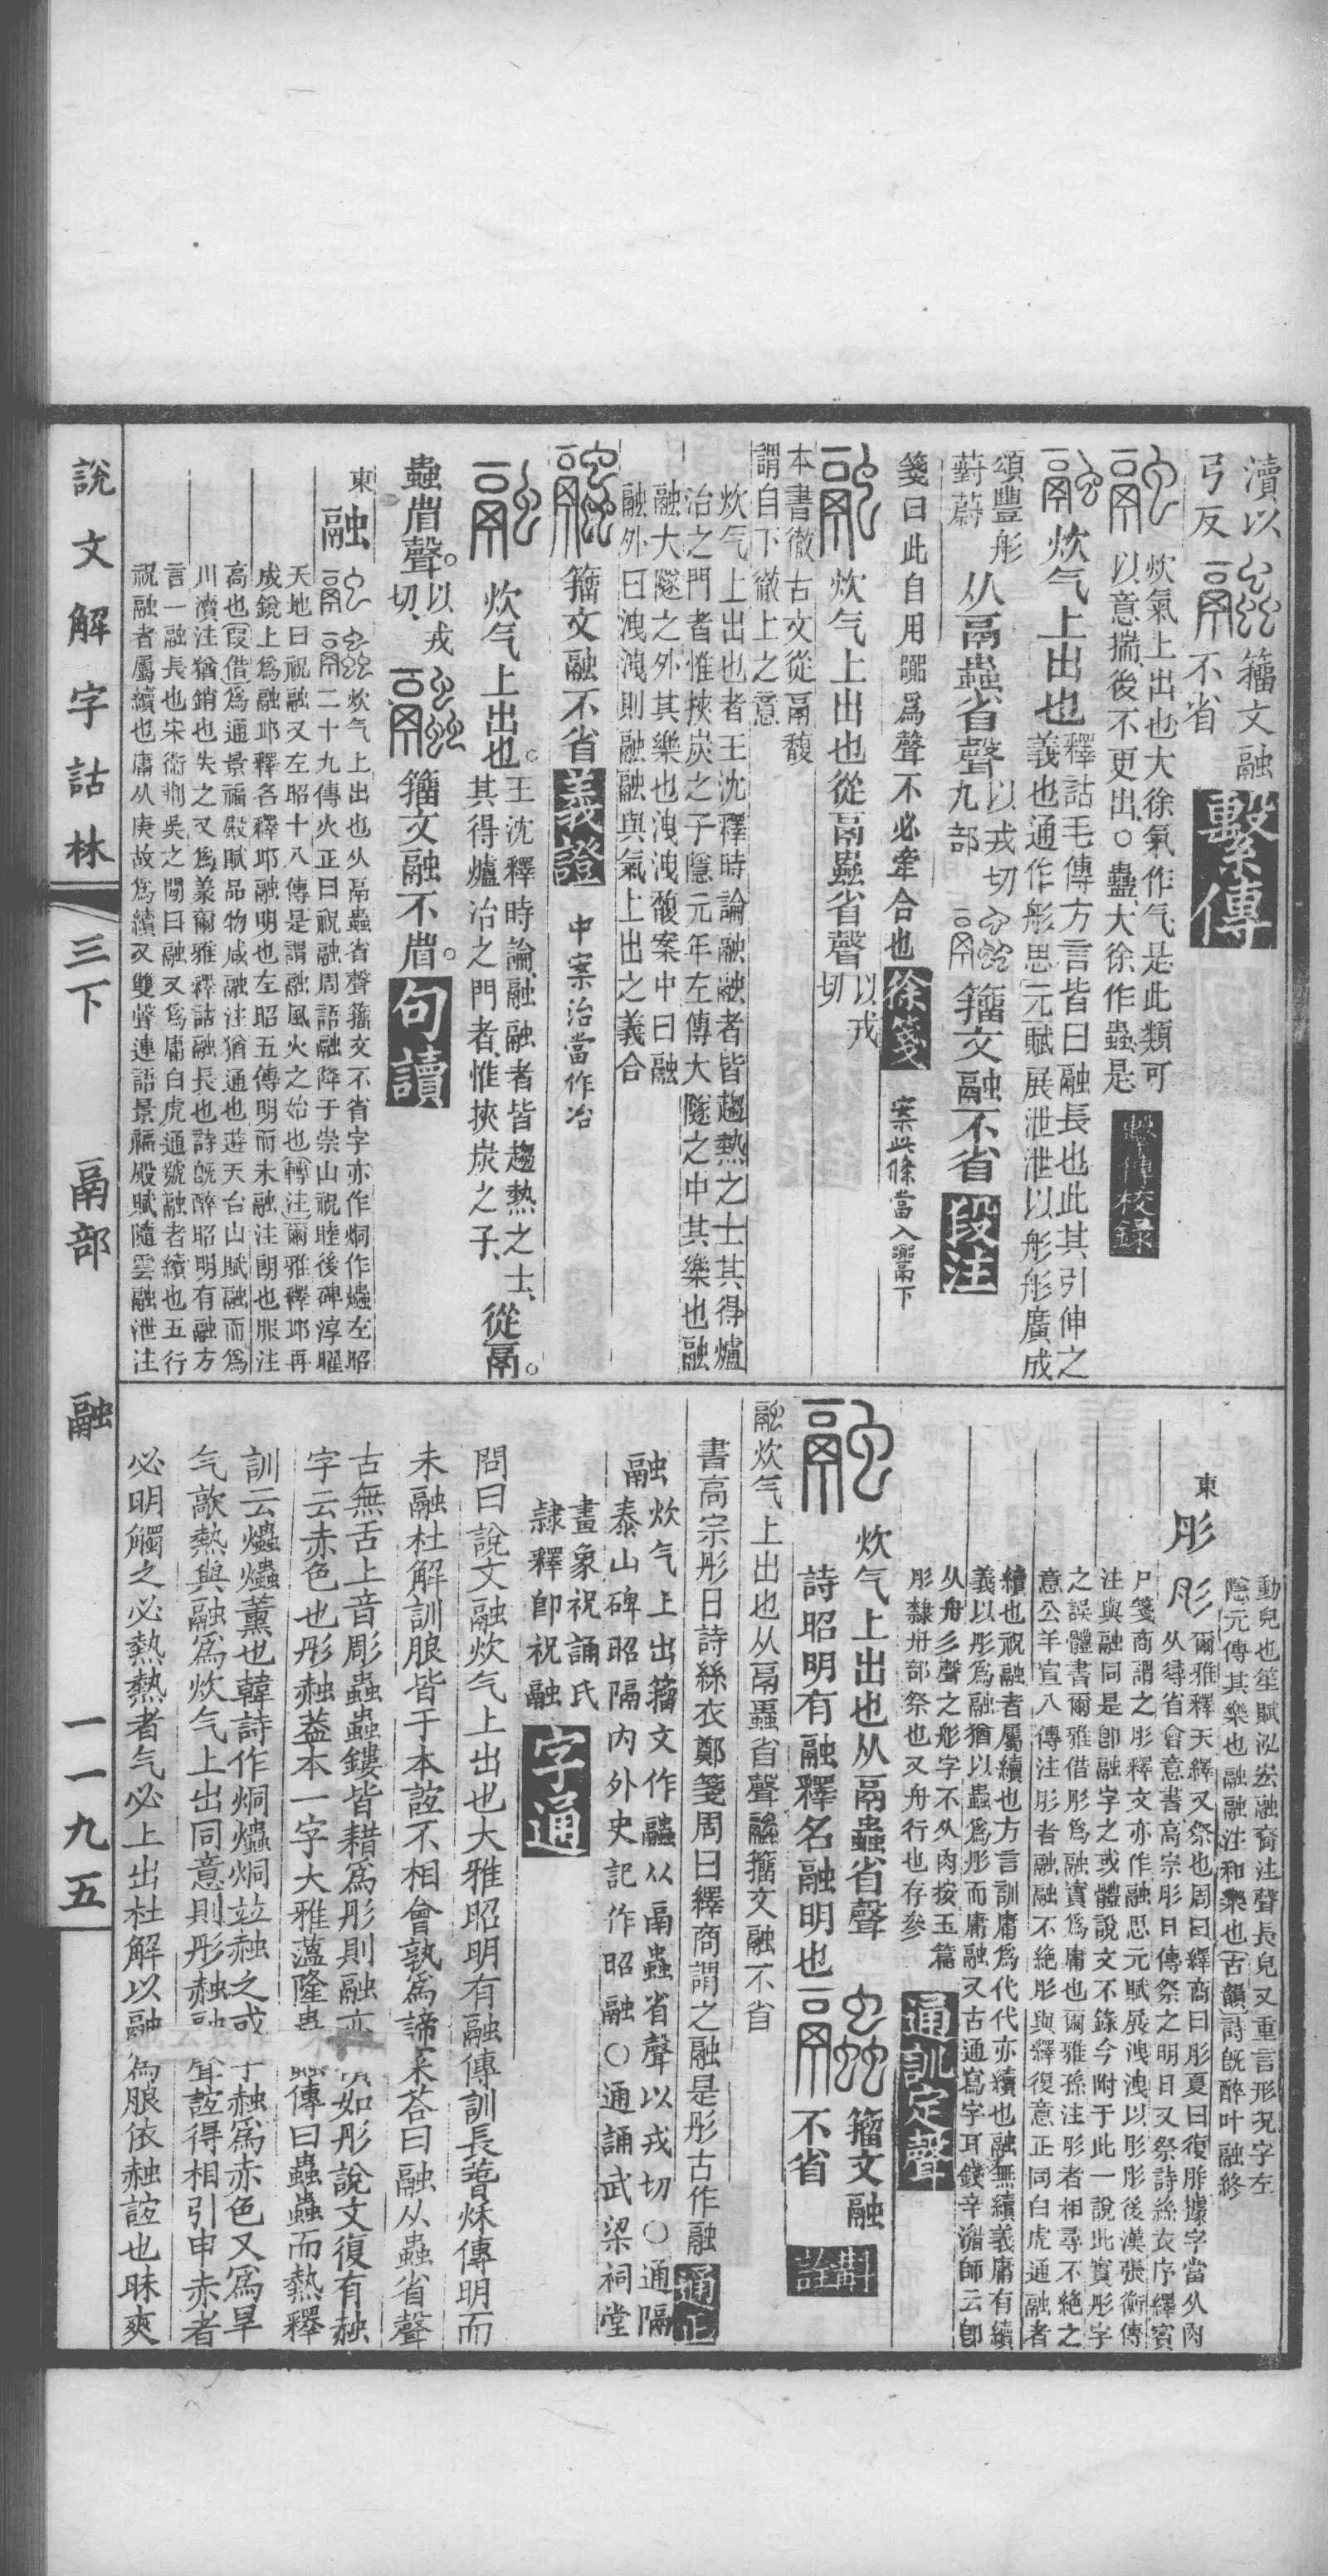 瀆以
弓反
籀文融
不省
繫傳
炊氣上出也大徐氣作气是此類可
以意揣後不更出○蠱大徐作蟲是
繫傳校錄
炊气上出也
釋詁毛傳方言皆曰融長也此其引伸之
義也通作肜思元賦展泄泄以肜肜廣成
頌豐肜
薱蔚
从鬲蟲省聲
以戎切
九部
籀文融不省
段注
箋曰此自用
爲聲不必牽合也
徐箋
案此條當入
下
炊气上出也從鬲蟲省聲
以戎
切
本書徹古文從鬲馥
謂自下徹上之意
炊气上出也者王沈釋時論融融者皆趨熱之士其得爐
冶之門者惟挾炭之子隱元年左傳大隧之中其樂也融
融大隧之外其樂也洩洩馥案中曰融
融外曰洩洩則融融與氣上出之義合
籀文融不省
義證
中案治當作冶
炊气上出也。
王沈釋時論融融者皆趨熱之士、
其得爐冶之門者、惟挾炭之子、
從鬲。
蟲省聲。
以戎
切、
籀文融不省。
句讀
東
融
炊气上出也从鬲蟲省聲籀文不省字亦作烔作爞左昭
二十九傳火正曰祝融周語融降于崇山祝睦後碑淳曜
天地曰祝融又左昭十八傳是謂融風火之始也轉注爾雅釋邱再
成銳上爲融邱釋名釋邱融明也左昭五傳明而未融注朗也服注
高也假借爲通景福殿賦品物咸融注猶通也遊天台山賦融而爲
川瀆注猶銷也失之又爲羕爾雅釋詁融長也詩旣醉昭明有融方
言一融長也宋衞荆吳之閒曰融又爲庸白虎通號融者續也五行
祝融者屬續也庸从庚故爲續又雙聲連語景福殿賦隨雲融泄注
動皃也笙賦泓宏融裔注聲長皃又重言形況字左
隱元傳其樂也融融注和樂也古韻詩旣醉叶融終
東
肜
肜
爾雅釋天繹又祭也周曰繹商曰肜夏曰復胙據字當从肉
从尋省會意書高宗肜日傳祭之明日又祭詩絲衣序繹賓
尸箋商謂之肜釋文亦作融思元賦展洩洩以肜肜後漢張衡傳
注與融同是卽融字之或體說文不錄今附于此一說此實彤字
之誤體書爾雅借肜爲融實爲庸也爾雅孫注肜者相尋不絶之
意公羊宣八傳注肜者融融不絶肜與繹復意正同白虎通融者
續也祝融者屬續也方言訓庸爲代代亦續也融無續義庸有續
義以肜爲融猶以蟲爲肜而庸融又古通寫字耳錢辛楣師云卽
从舟彡聲之彤字不从肉按玉篇
肜隸舟部祭也又舟行也存參
通訓定聲
炊气上出也从鬲蟲省聲
籀文融
詩昭明有融釋名融明也
不省
斠詮
融炊气上出也从鬲蟲省聲
籀文融不省
書高宗肜日詩絲衣鄭箋周曰繹商謂之融是肜古作融
通正
融
炊气上出籀文作
从鬲蟲省聲以戎切○通隔
泰山碑昭隔內外史記作昭融○通誦武梁祠堂
畫象祝誦氏
隸釋卽祝融
字通
問曰說文融炊气上出也大雅昭明有融傳訓長春秋傳明而
未融杜解訓朖皆于本誼不相會孰爲諦
荅曰融从蟲省聲
古無舌上音彫蟲蟲鏤皆耤爲彤則融亦
如彤說文復有赨
字云赤色也彤赨蓋本一字大雅薀隆蟲
傳曰蟲蟲而熱釋
訓云爞爞薰也韓詩作烔爞烔竝赨之或
赨爲赤色又爲旱
气歊熱與融爲炊气上出同意則彤赨融
聲誼得相引申赤者
必明觸之必熱熱者气必上出杜解以融爲朖依赨誼也昧爽
說文解字詁林
三下
鬲部
融
一一九五